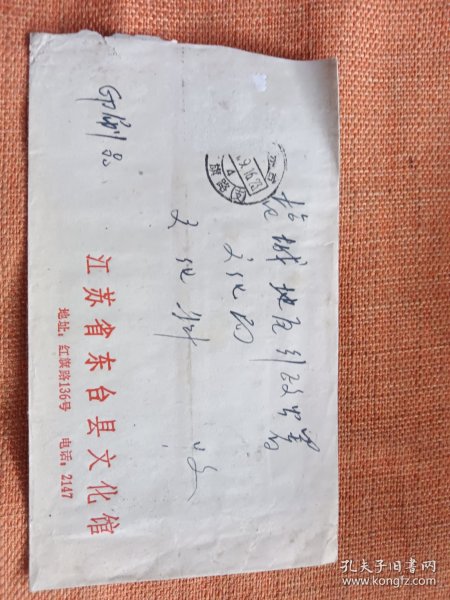 印刷品
盐城地区行政公署
文化局
文化科
收
江苏省东台县文化馆
地址：红旗路136号 电话：2147
孔夫子旧书网
www.kongfz.com